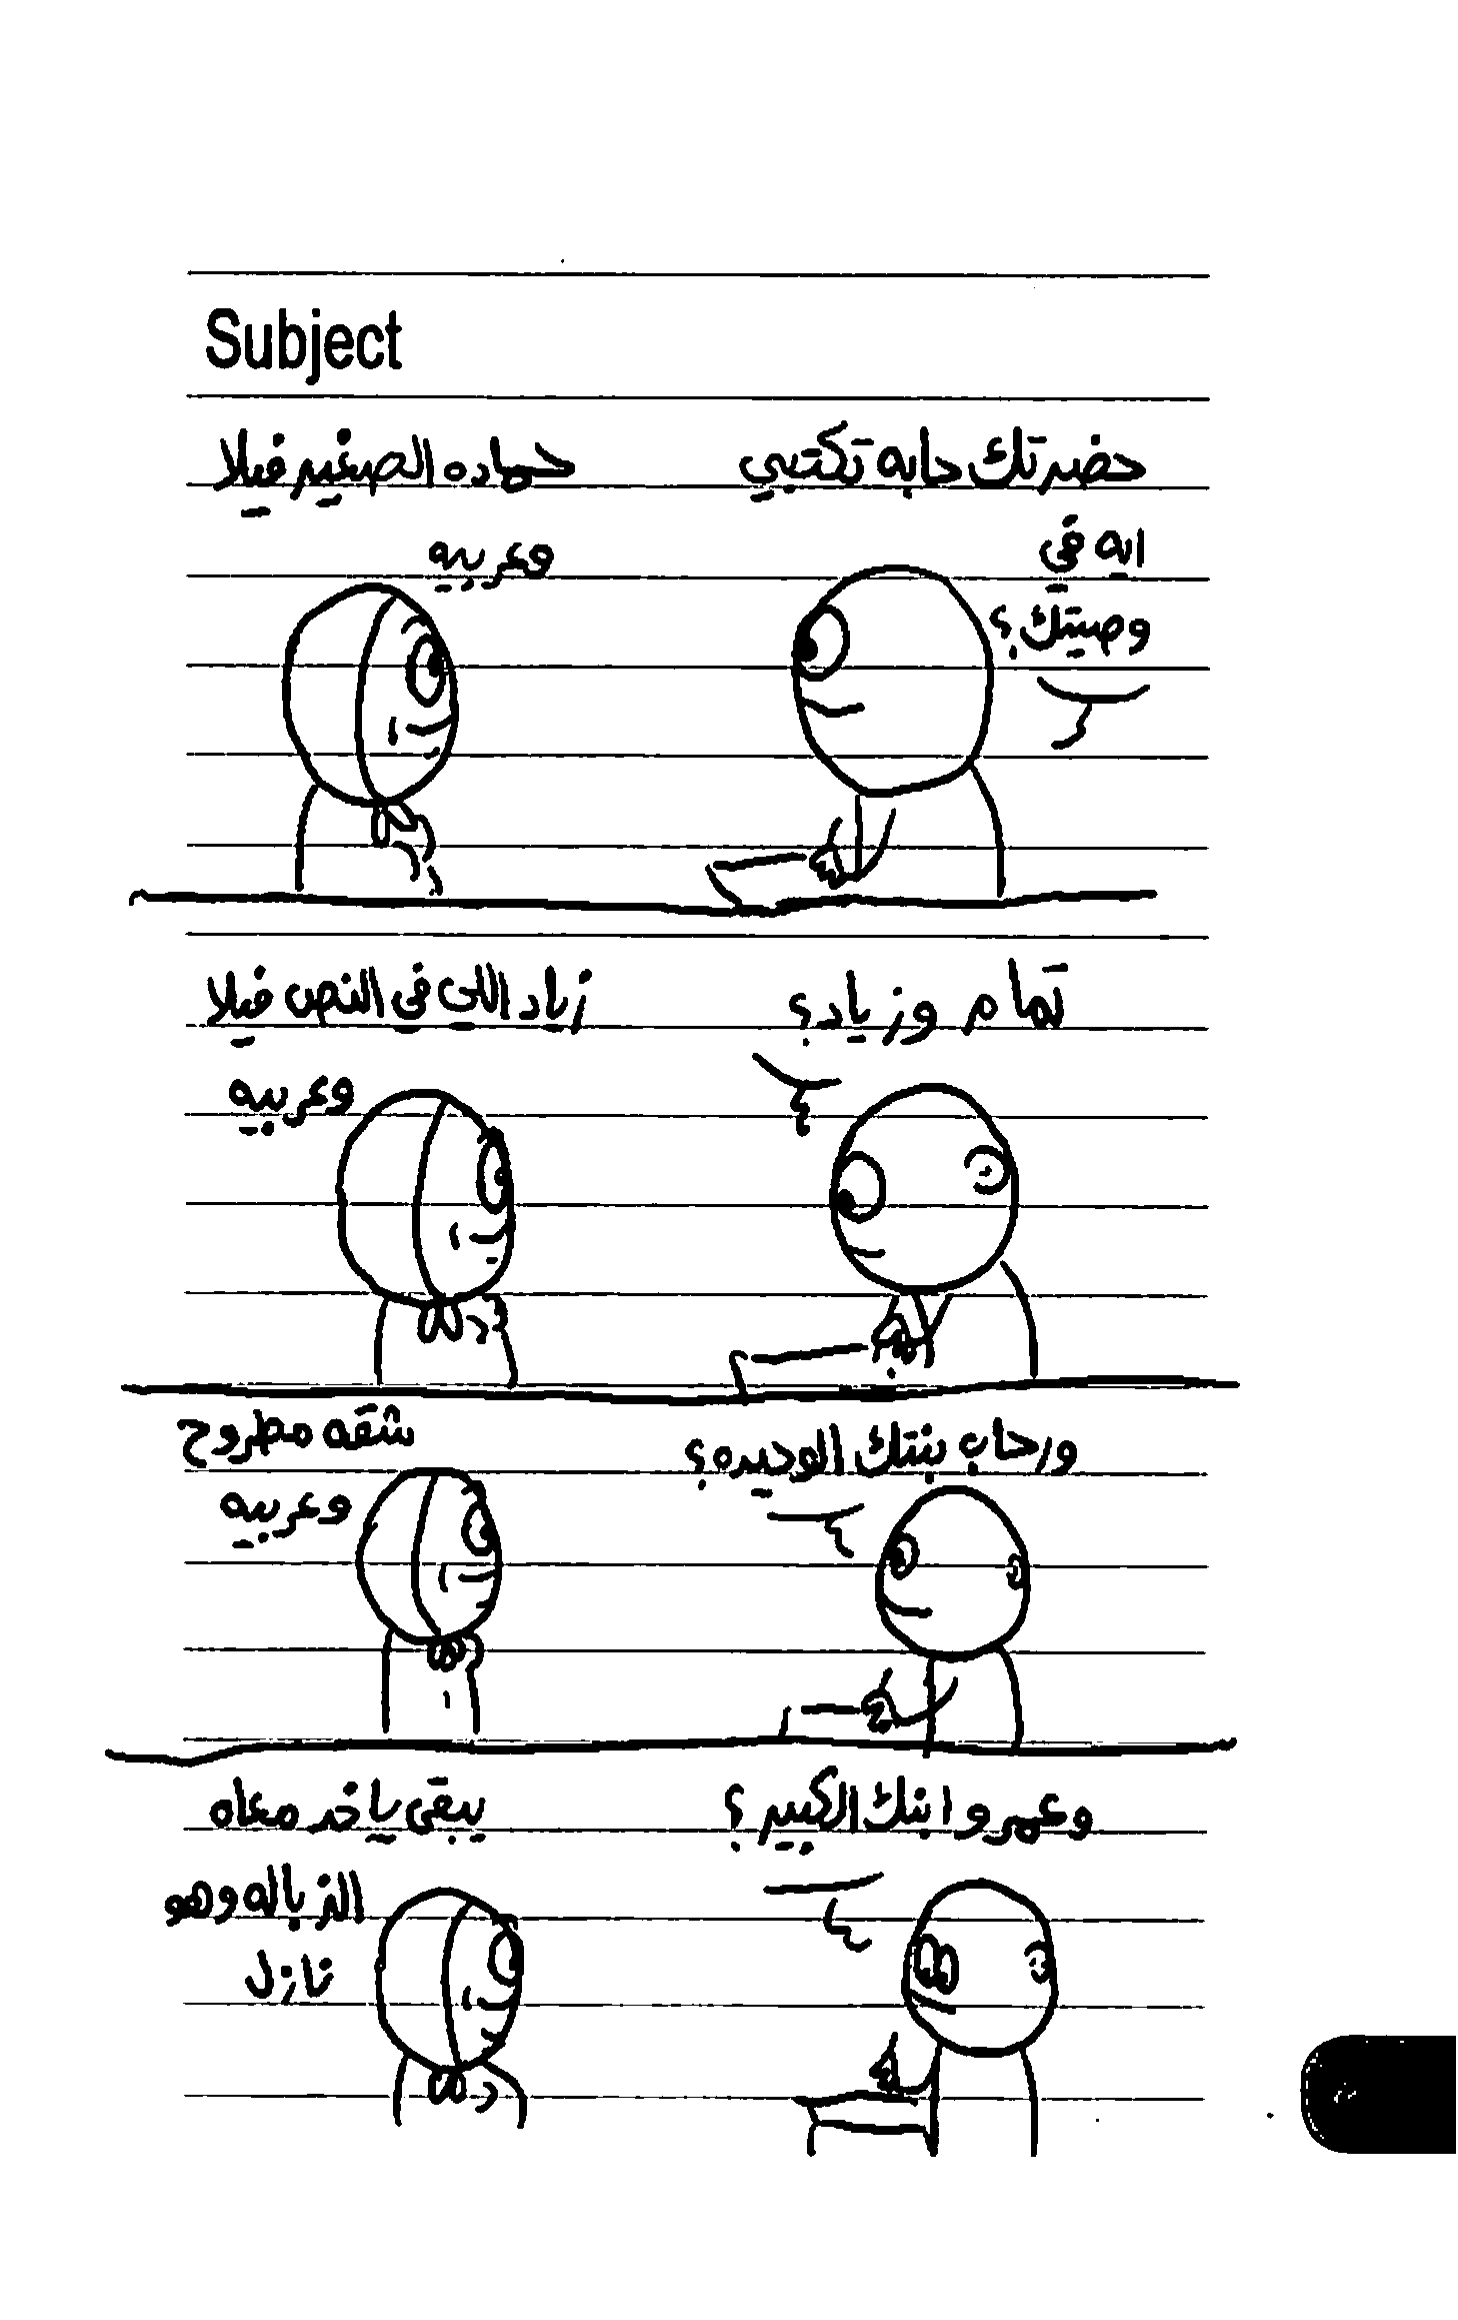 Subject
حضرتك حابه تكتبي
ايه في
وصيتك؟
حماده الصغير فيلا
وعربيه
تمام وزياد؟
زياد اللي في النص فيلا
وعربيه
ورحاب بنتك الوحيده؟
شقه مطروح
وعربيه
وعمرو ابنك الكبير؟
يبقى ياخد معاه
الزباله وهو
نازل